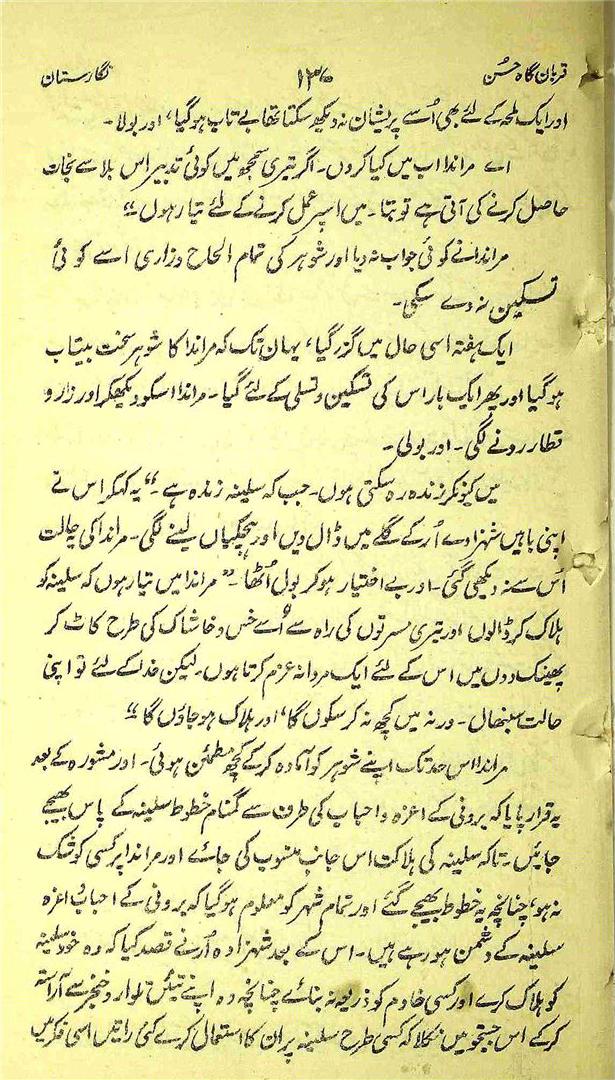 قربان گاہ حُسن ۱۳۰ نگارستان
اور ایک لمحہ کے لئے بھی اُسے پریشان نہ دیکھ سکتا تھا بے تاب ہو گیا، اور بولا۔
اے مراندا اب میں کیا کروں۔ اگر تیری سمجھ میں کوئی تدبیر اس بلا سے نجات
حاصل کرنے کی آتی ہے تو بتا۔ میں اسپر عمل کرنے کے لئے تیار ہوں“
مراندا نے کوئی جواب نہ دیا اور شوہر کی تمام الحاح و زاری اسے کوئی
تسکین نہ دے سکی۔
ایک ہفتہ اسی حال میں گزر گیا، یہاں تک کہ مراندا کا شوہر سخت بیتاب
ہو گیا اور پھر ایک بار اس کی تسکین و تسلی کے لئے گیا۔ مراندا اسکو دیکھکر اور زار و
قطار رونے لگی۔ اور بولی۔
میں کیونکر زندہ رہ سکتی ہوں۔ جب کہ سلینہ زندہ ہے۔“ یہ کہکر اس نے
اپنی باہیں شہزادے اُر کے گلے میں ڈال دیں اور ہچکیاں لینے لگی۔ مراندا کی یہ حالت
اُس سے نہ دیکھی گئی۔ اور بے اختیار ہو کر بول اُٹھا۔ ”مراندا میں تیار ہوں کہ سلینہ کو
ہلاک کر ڈالوں اور تیری مسرتوں کی راہ سے اُسے خس و خاشاک کی طرح کاٹ کر
پھینک دوں میں اس کے لئے ایک مردانہ عزم کرتا ہوں۔ لیکن خدا کے لئے تو اپنی
حالت سنبھال۔ ورنہ میں کچھ نہ کر سکوں گا، اور ہلاک ہو جاؤں گا“
مراندا اس حد تک اپنے شوہر کو آمادہ کر کے کچھ مطمئن ہوئی۔ اور مشورہ کے بعد
یہ قرار پایا کہ برونی کے اعزہ و احباب کی طرف سے گمنام خطوط سلینہ کے پاس بھیجے
جائیں۔ تاکہ سلینہ کی ہلاکت اس جانب منسوب کی جائے اور مراندا پر کسی کو شک
نہ ہو، چنانچہ یہ خطوط بھیجے گئے اور تمام شہر کو معلوم ہو گیا کہ برونی کے احباب و اعزہ
سلینہ کے دشمن ہو رہے ہیں۔ اس کے بعد شہزادہ اُر نے قصد کیا کہ وہ خود سلینہ
کو ہلاک کرے اور کسی خادم کو ذریعہ نہ بنائے چنانچہ وہ اپنے تئیں تلوار و خنجر سے آراستہ
کر کے اس جستجو میں نکلا کہ کسی طرح سلینہ پر ان کا استعمال کرے کئی راتیں اسی فکر میں